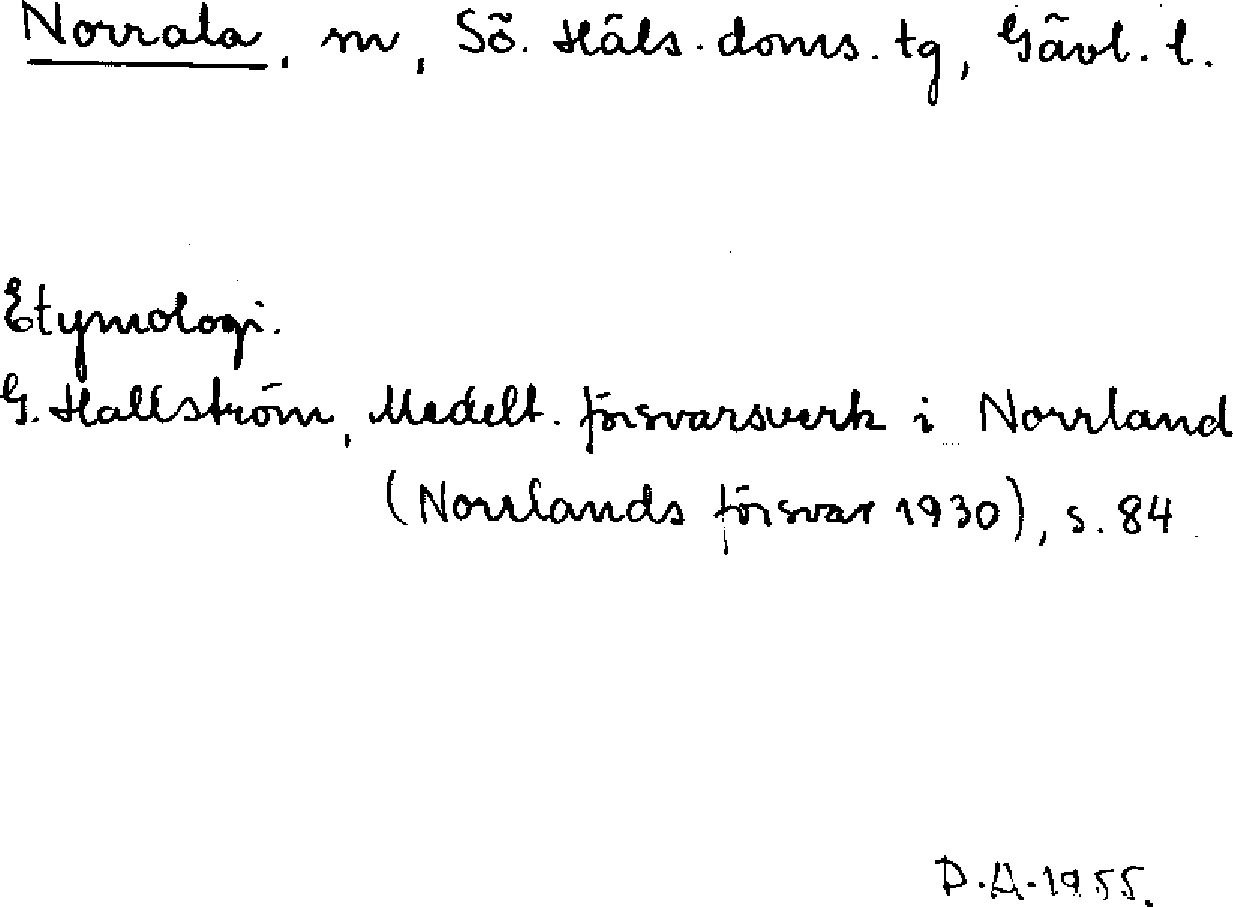 Norrala, sn, Sö. Häls. doms. tg, Gävl. l.
Etymologi.
G. Hallström, Medelt. försvarsverk i Norrland
(Norrlands försvar 1930), s. 84.
D.A. 1955.